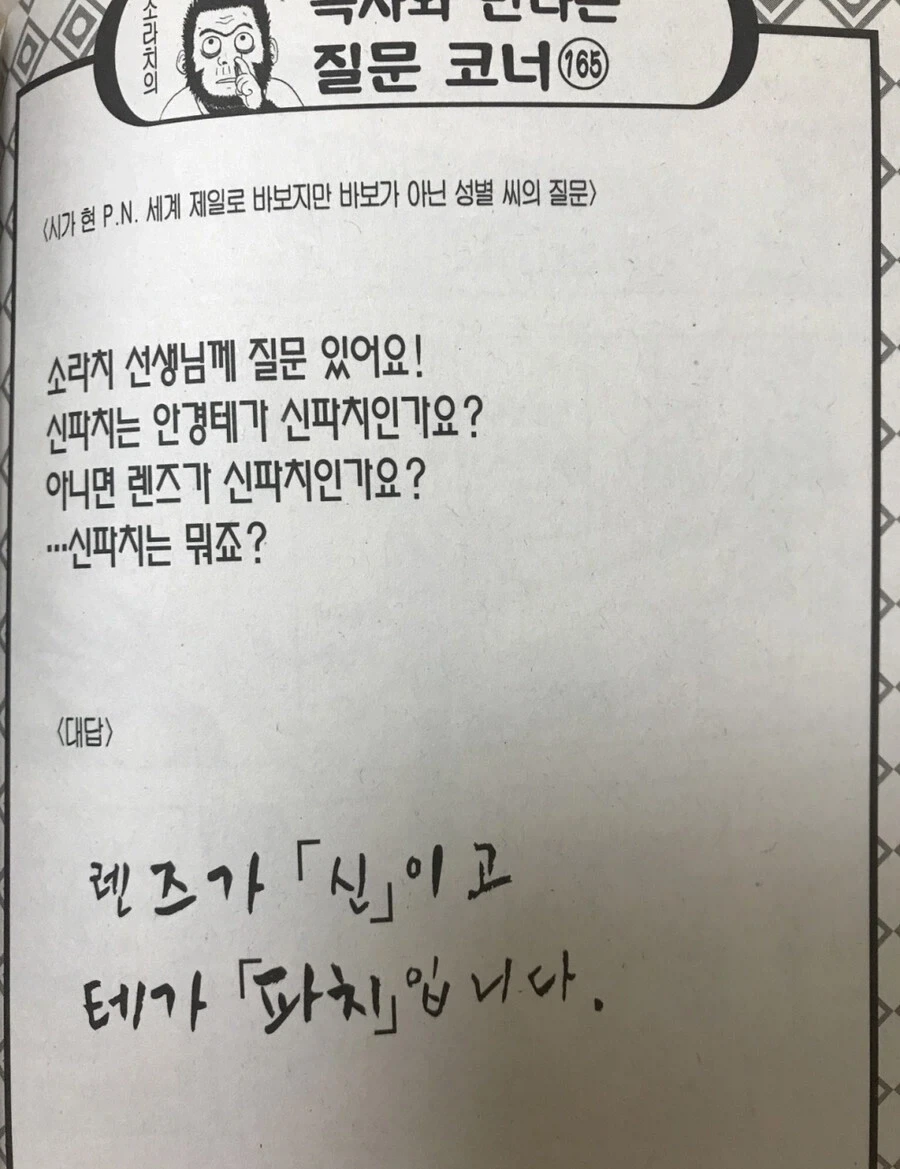 소라치의
독자와 만나는
질문 코너 165
〈시가 현 P.N. 세계 제일로 바보지만 바보가 아닌 성별 씨의 질문〉
소라치 선생님께 질문 있어요!
신파치는 안경테가 신파치인가요?
아니면 렌즈가 신파치인가요?
…신파치는 뭐죠?
〈대답〉
렌즈가 「신」이고
테가 「파치」입니다.